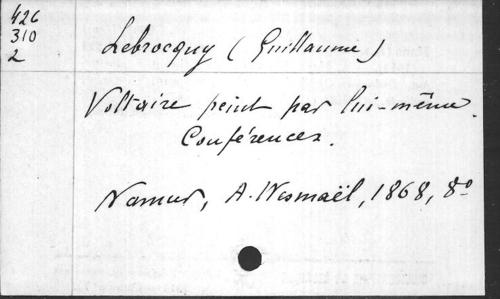 426
310
2
Lebrocquy (Guillaume)
Voltaire peint par lui-même.
Conférences.
Namur, A. Wesmaël, 1868, 8º